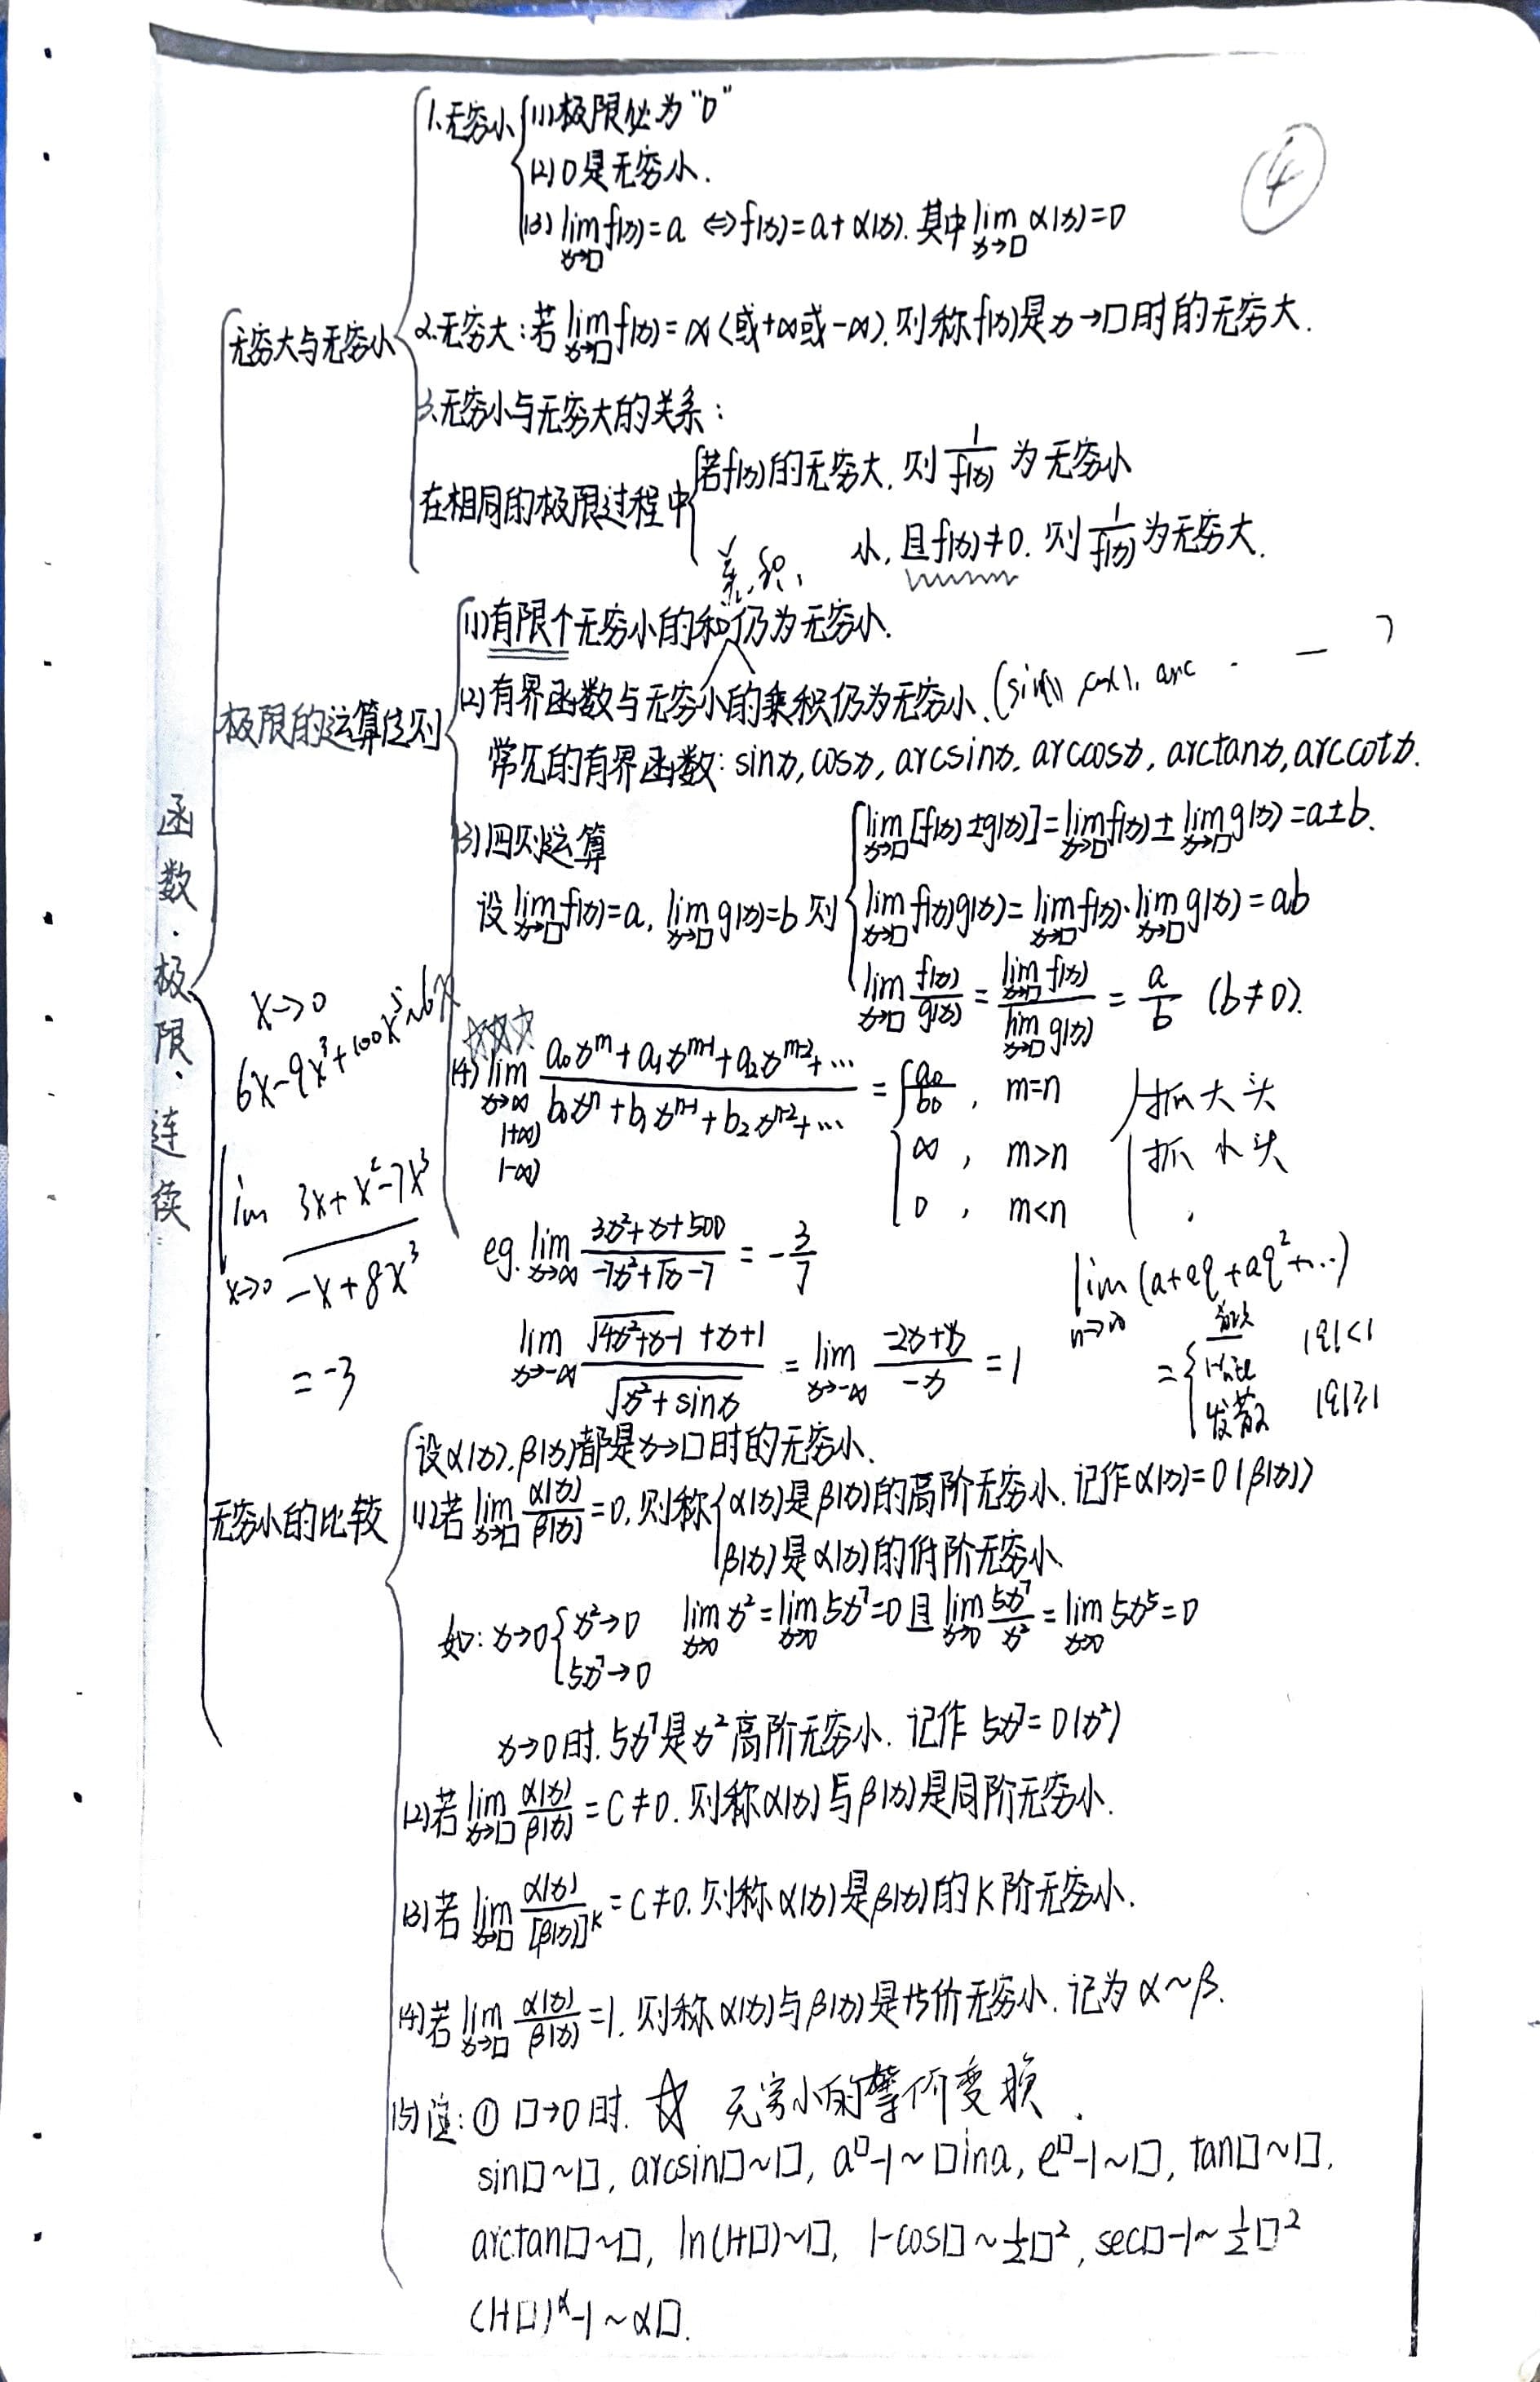 ④
函数·极限·连续
无穷大与无穷小
1.无穷小
(1)极限必为"0"
(2)0是无穷小.
(3) lim x→□ f(x)=a ⇔ f(x)=a+α(x). 其中 lim x→□ α(x)=0
2.无穷大:若 lim x→□ f(x)=∞(或+∞或-∞).则称f(x)是x→□时的无穷大.
3.无穷小与无穷大的关系:
在相同的极限过程中
若f(x)的无穷大.则 1/f(x) 为无穷小
小,且f(x)≠0.则 1/f(x) 为无穷大.
极限的运算法则
差,积,
(1)有限个无穷小的和仍为无穷小.
(2)有界函数与无穷小的乘积仍为无穷小.(sin( ), cos( ), arc - —)
常见的有界函数:sinx,cosx,arcsinx.arccosx,arctanx,arccotx.
(3)四则运算
设 lim x→□ f(x)=a, lim x→□ g(x)=b 则
lim x→□ [f(x)±g(x)]=lim x→□ f(x)±lim x→□ g(x)=a±b.
lim x→□ f(x)g(x)=lim x→□ f(x)·lim x→□ g(x)=ab
lim x→□ f(x)/g(x) = lim x→□ f(x) / lim x→□ g(x) = a/b (b≠0).
☆☆☆
(4) lim x→∞ (+∞) (-∞) (a₀x^m+a₁x^(m-1)+a₂x^(m-2)+…)/(b₀x^n+b₁x^(n-1)+b₂x^(n-2)+…) =
a₀/b₀, m=n
∞, m>n
0, m<n
抓大头
抓小头
x→0
6x-9x³+100x⁵~6x
lim x→0 (3x+x²-7x³)/(-x+8x³)
=-3
eg. lim x→∞ (3x²+x+500)/(-7x²+√x-7) = -3/7
lim x→-∞ (√(4x²+x-1)+x+1)/√(x²+sinx) = lim x→-∞ (-2x+x)/(-x) = 1
lim n→∞ (a+aq+aq²+…)
= |q|<1
发散 |q|≥1
无穷小的比较
设α(x),β(x)都是x→□时的无穷小.
(1)若 lim x→□ α(x)/β(x)=0.则称
α(x)是β(x)的高阶无穷小.记作α(x)=0(β(x))
β(x)是α(x)的低阶无穷小.
如:x→0
x²→0
5x⁷→0
lim x→0 x²=lim x→0 5x⁷=0且 lim x→0 5x⁷/x²=lim x→0 5x⁵=0
x→0时.5x⁷是x²高阶无穷小.记作 5x⁷=0(x²)
(2)若 lim x→□ α(x)/β(x)=C≠0.则称α(x)与β(x)是同阶无穷小.
(3)若 lim x→□ α(x)/[β(x)]^K=C≠0.则称α(x)是β(x)的K阶无穷小.
(4)若 lim x→□ α(x)/β(x)=1.则称α(x)与β(x)是等价无穷小.记为α~β.
(5)注:① □→0时. ☆ 无穷小的等价变换.
sin□~□, arcsin□~□, a^□-1~□lna, e^□-1~□, tan□~□,
arctan□~□, ln(1+□)~□, 1-cos□~½□², sec□-1~½□²
(1+□)^α-1~α□.